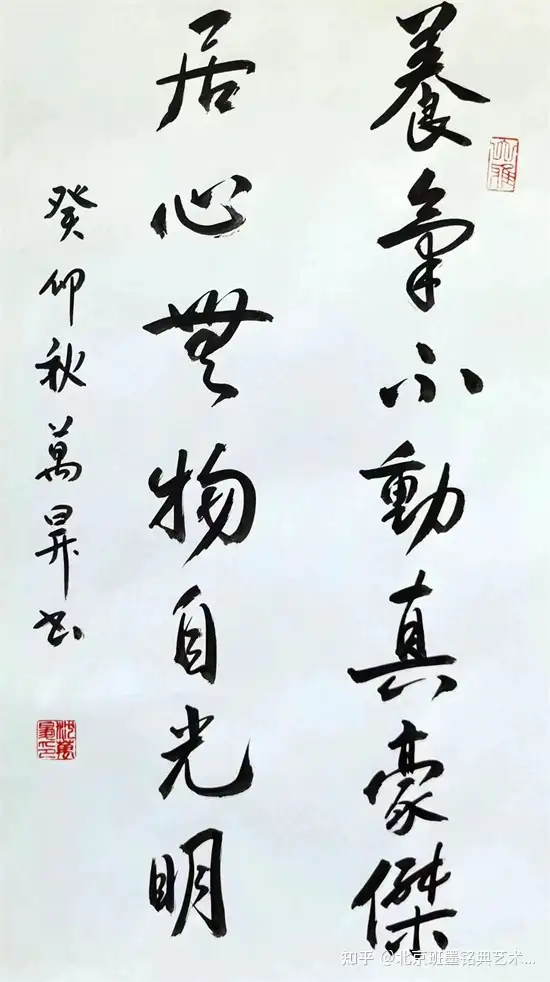 養氣不動真豪傑
居心無物自光明
癸卯秋萬昇书
知乎 @北京班墨铭典艺术...